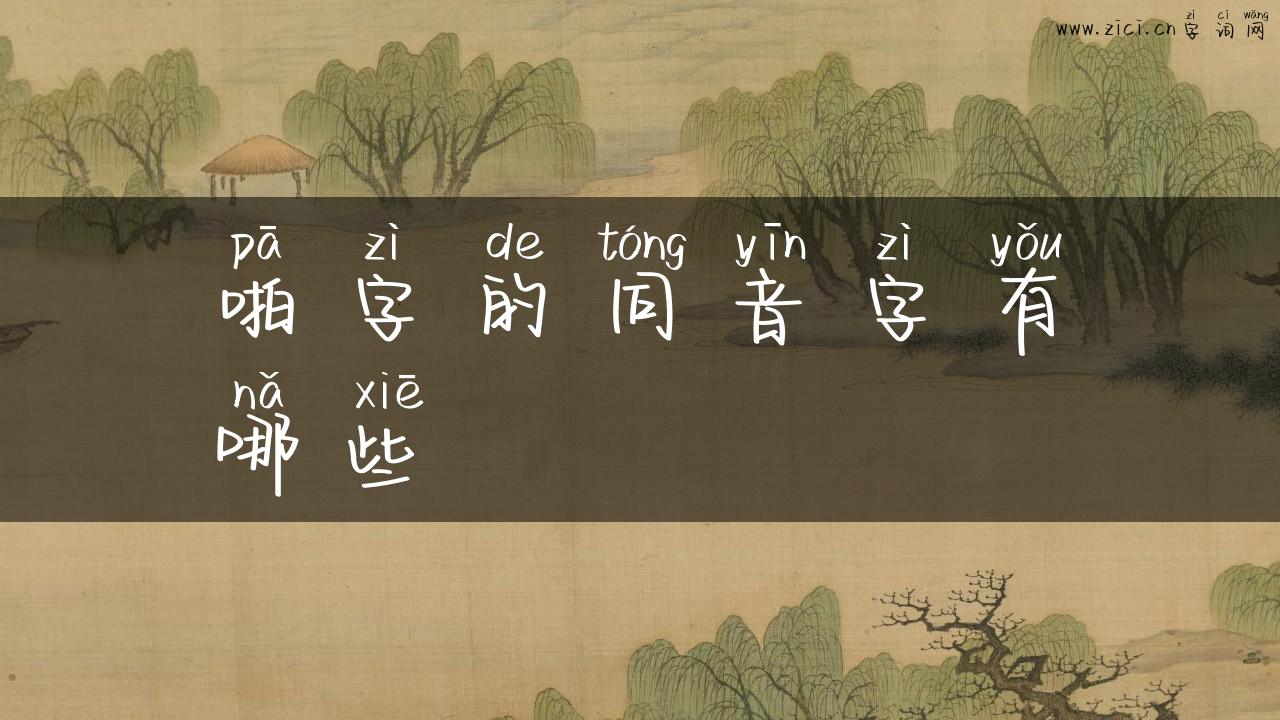 zì cí wǎng
www.zici.cn 字 词 网
pā zì de tóng yīn zì yǒu
啪 字 的 同 音 字 有
nǎ xiē
哪 些